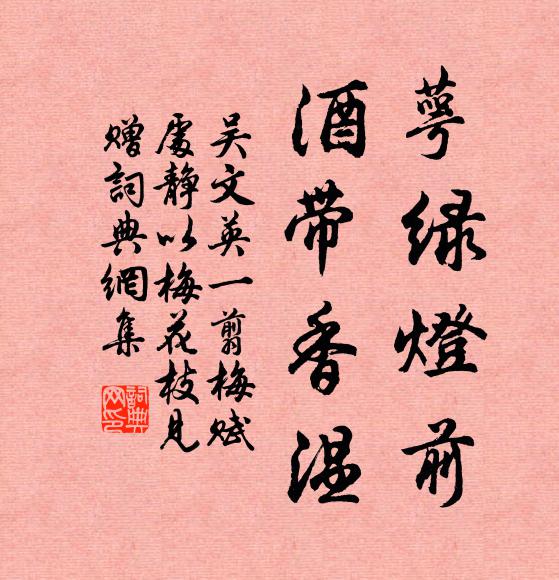 萼綠燈前
酒帶香温
吴文英一剪梅賦
處靜以梅花枝見
贈詞典網集
詞典
网印